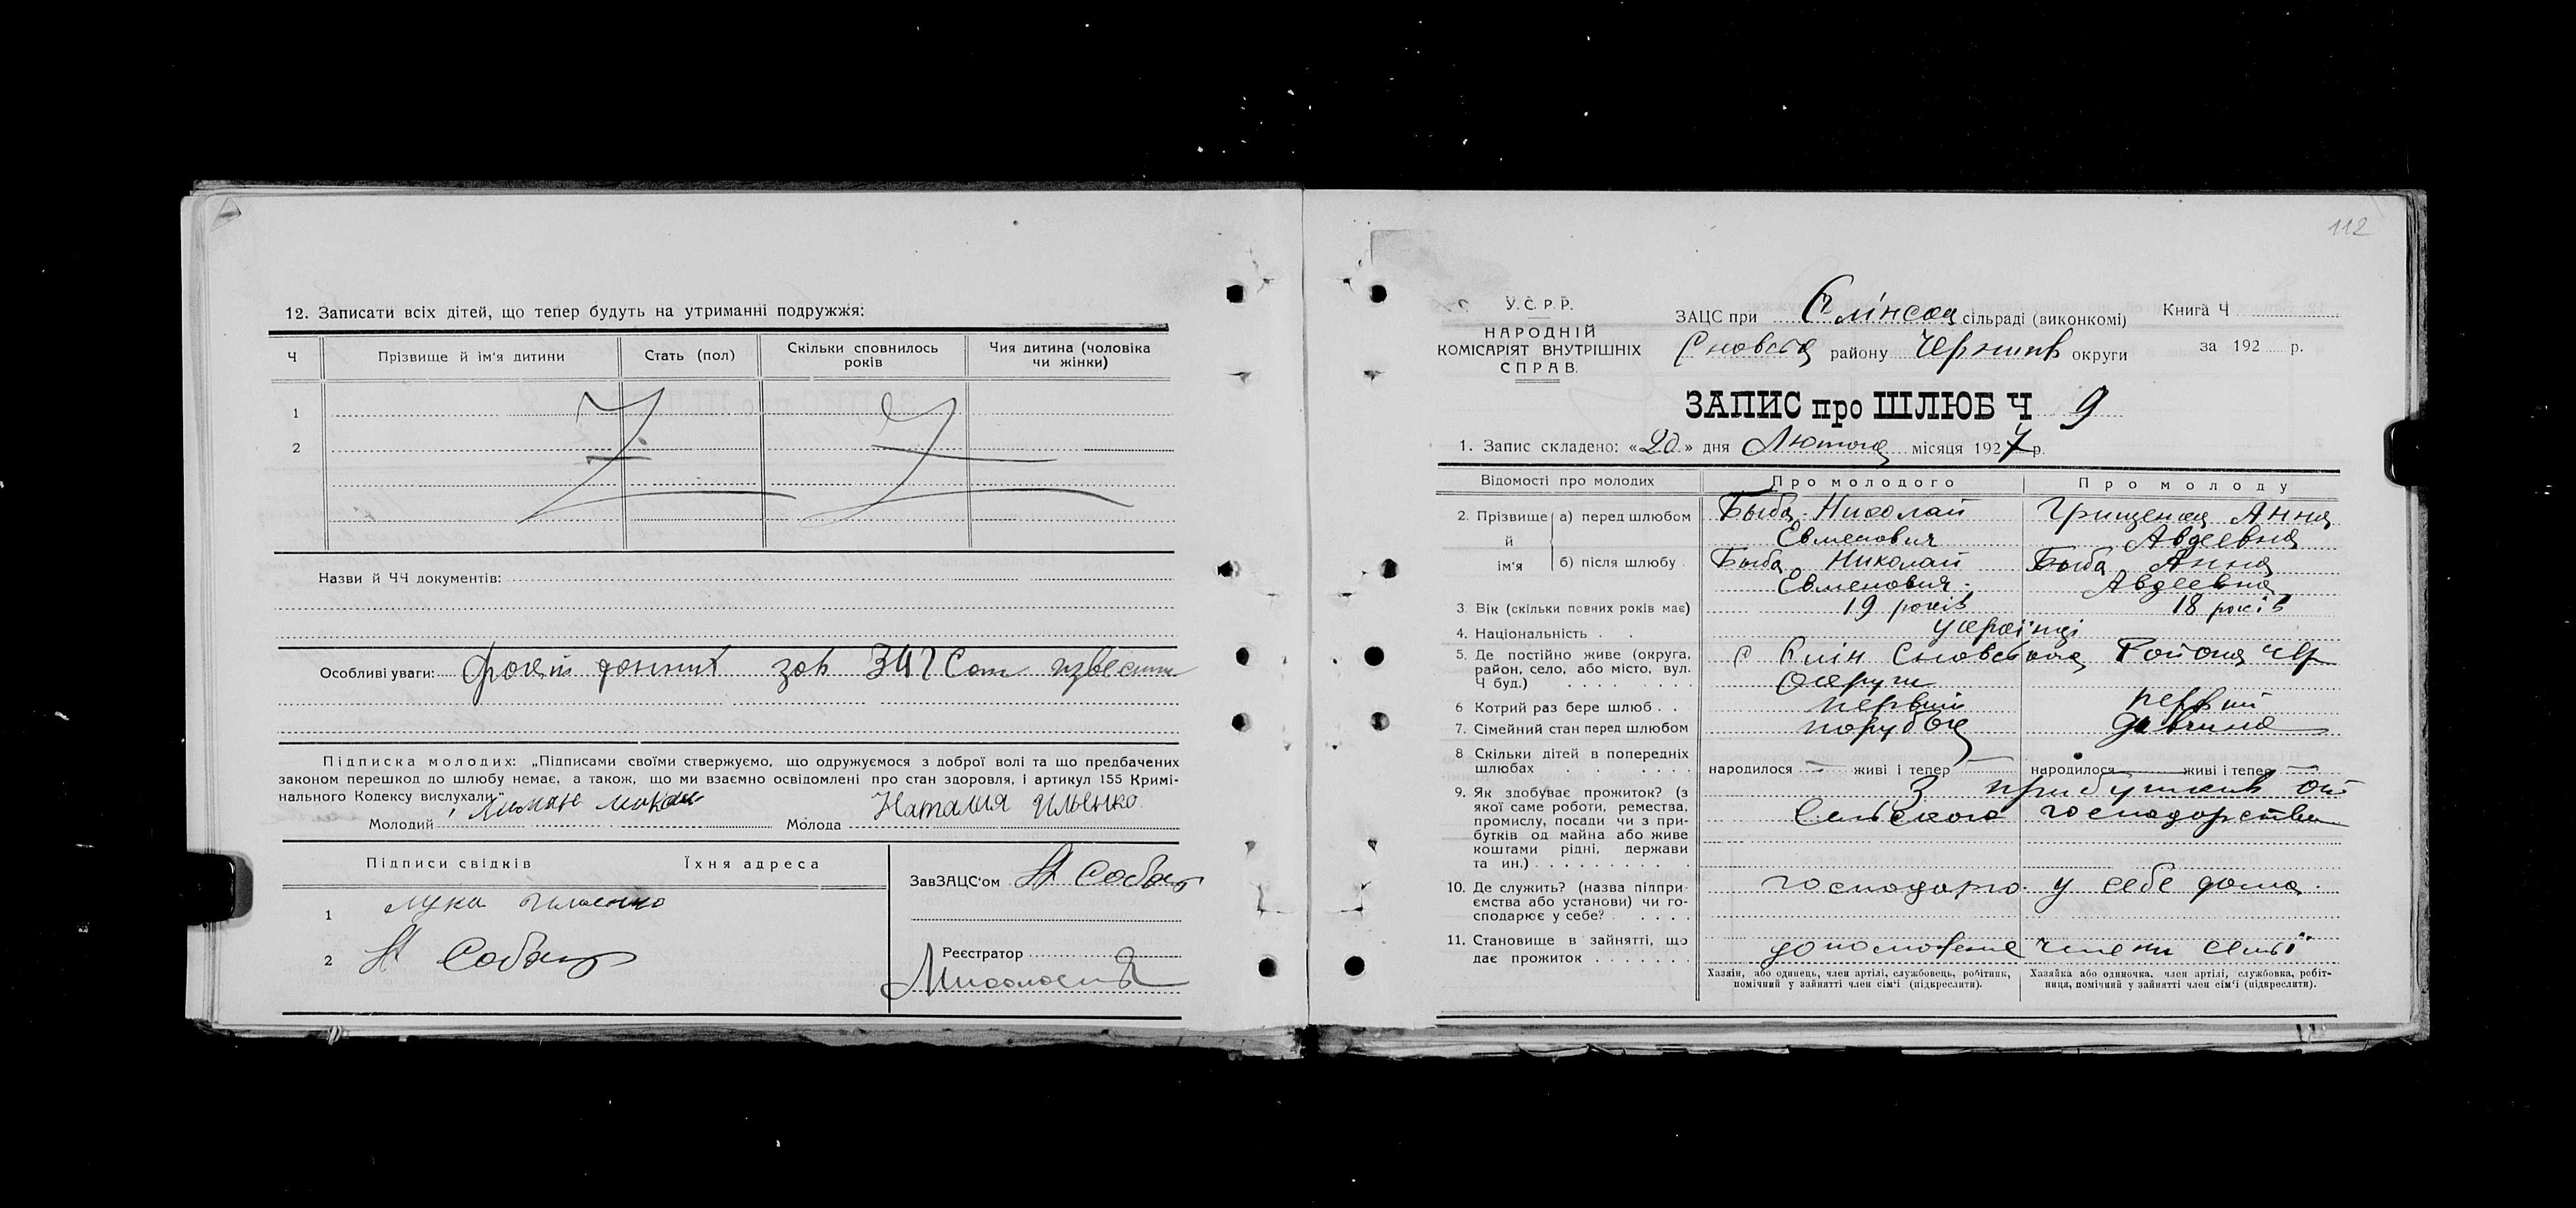 12. Записати всіх дітей, що тепер будуть на утриманні подружжя:
Ч Прізвище й ім'я дитини Стать (пол) Скільки сповнилось років Чия дитина (чоловіка чи жінки)
1
2
Назви й ЧЧ документів:
Особливі уваги: зав ЗАГСом
Підписка молодих: „Підписами своїми стверджуємо, що одружуємося з доброї волі та що предбачених
законом перешкод до шлюбу немає, а також, що ми взаємно освідомлені про стан здоровля, і артикул 155 Кримі-
нального Кодексу вислухали."
Молодий Молода Наталия Ильенко.
Підписи свідків Їхня адреса
1 Лука Ильенко
2
ЗавЗАЦС'ом
Реєстратор
112
У.С.Р.Р.
НАРОДНІЙ
КОМІСАРІЯТ ВНУТРІШНІХ
СПРАВ.
ЗАЦС при сільраді (виконкомі) Книга Ч
Сновська району Черниив округи за 192 р.
ЗАПИС про ШЛЮБ Ч 9
1. Запис складено: «20» дня Лютого місяця 1927 р.
Відомості про молодих Про молодого Про молоду
2. Прізвище й ім'я а) перед шлюбом Быба Николай Грищенка Анна
Евменович Авдеевна
б) після шлюбу Быба Николай Быба Анна
Евменович. Авдеевна
3. Вік (скільки повних років має) 19 років 18 років
4. Національність українці
5. Де постійно живе (округа, район, село, або місто, вул. Ч буд.) с Клін Сновського Району Чер
Округи
6 Котрий раз бере шлюб первий первий
7. Сімейний стан перед шлюбом парубок дивчина
8 Скільки дітей в попередніх шлюбах народилося — живі і тепер — народилося — живі і тепер —
9. Як здобуває прожиток? (з якої саме роботи, ремества, промислу, посади чи з при-бутків од майна або живе коштами рідні, держави та ин.) З прибутків от
Сельского господарства
10. Де служить? (назва підпри-ємства або установи) чи го-сподарює у себе? господарю у себе дома.
11. Становище в зайнятті, що дає прожиток члени семьї
Хазяїн, або одинець, член артілі, службовець, робітник, помічний у зайнятті член сім'ї (підкреслити).
Хазяйка або одиночка, член артілі, службовка, робіт-ниця, помічний у зайнятті член сім'ї (підкреслити).